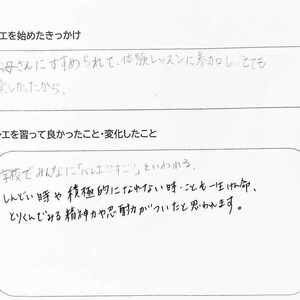 エを始めたきっかけ
お母さんにすすめられて、体験レッスンに参加し、とても
楽しかったから。
エを習って良かったこと・変化したこと
学校でみんなに「すごい」といわれる。
しんどい時や積極的になれない時・ことも一生けん命、
とりくんでみる精神力や忍耐力がついたと思われます。